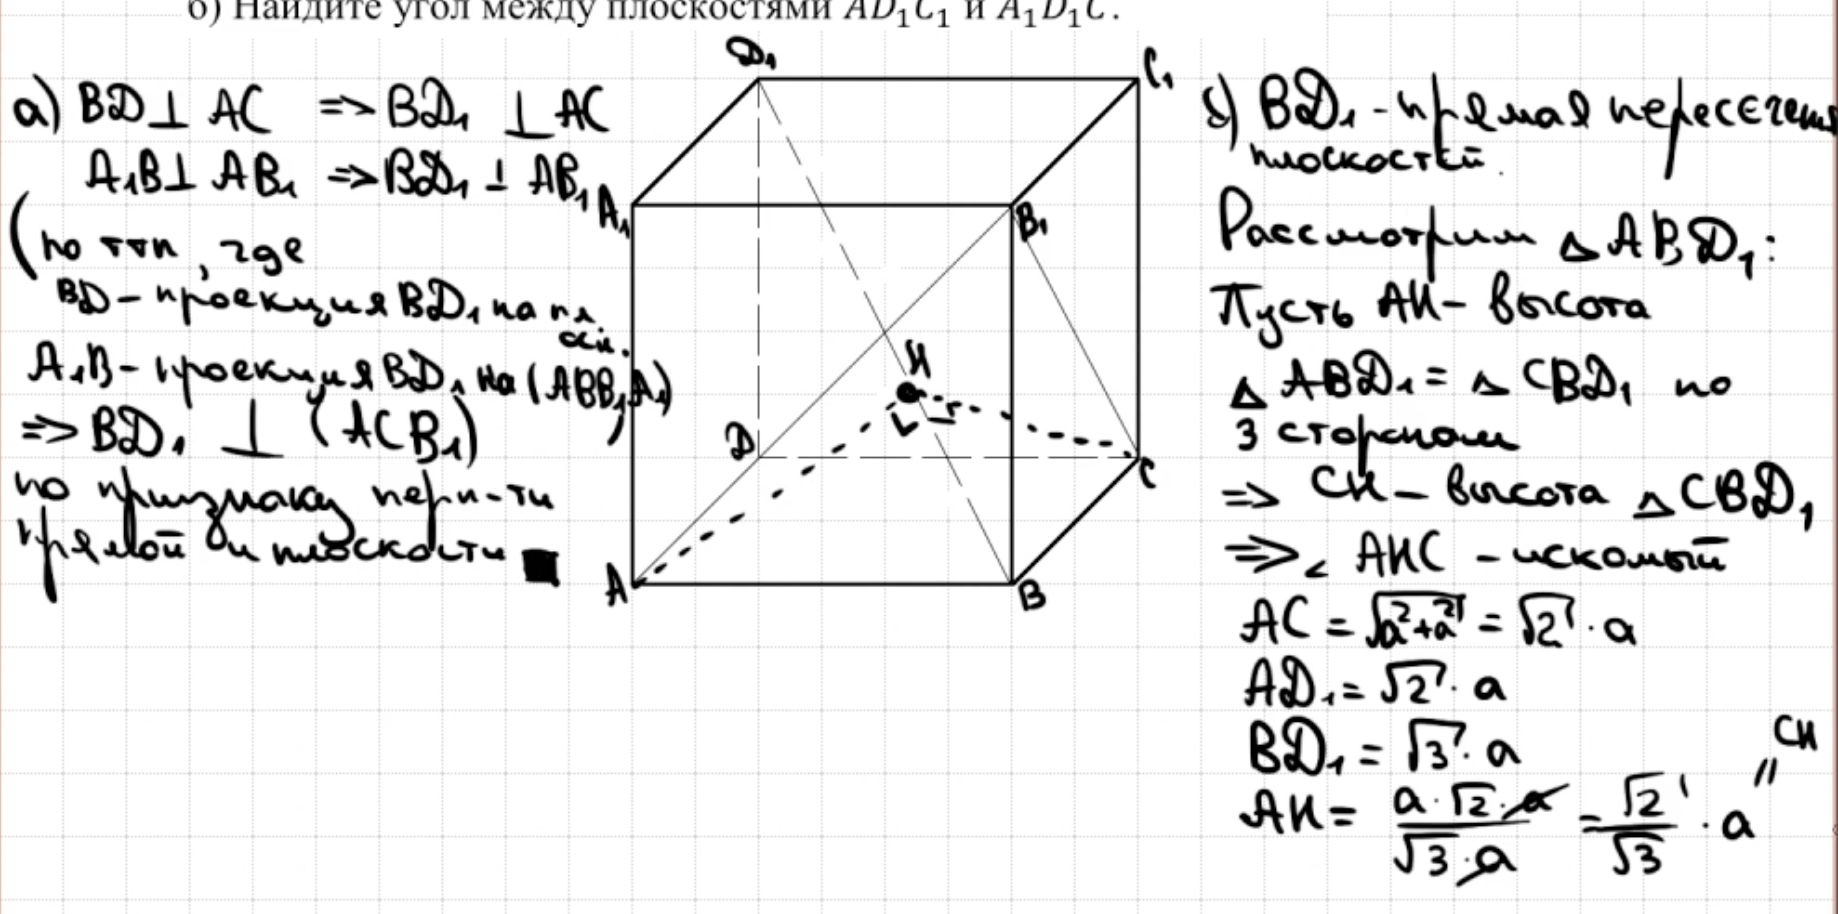 б) Найдите угол между плоскостями AD₁C₁ и A₁D₁C.
а) BD ⊥ AC => BD₁ ⊥ AC
A₁B ⊥ AB₁ => BD₁ ⊥ AB₁
(по ттп, где
BD - проекция BD₁ на пл
осн.
A₁B - проекция BD₁ на (ABB₁A₁)
)
=> BD₁ ⊥ (ACB₁)
по признаку перп-ти
прямой и плоскости ■
D₁
C₁
A₁
B₁
H
D
C
A
B
б) BD₁ - прямая пересечения
плоскостей.
Рассмотрим △ ABD₁:
Пусть AH - высота
△ ABD₁ = △ CBD₁ по
3 сторонам
=> CH - высота △ CBD₁
=> ∠ AHC - искомый
AC = √a²+a² = √2 · a
AD₁ = √2 · a
BD₁ = √3 · a
AH = a · √2 · a / √3 · a = √2 / √3 · a = CH